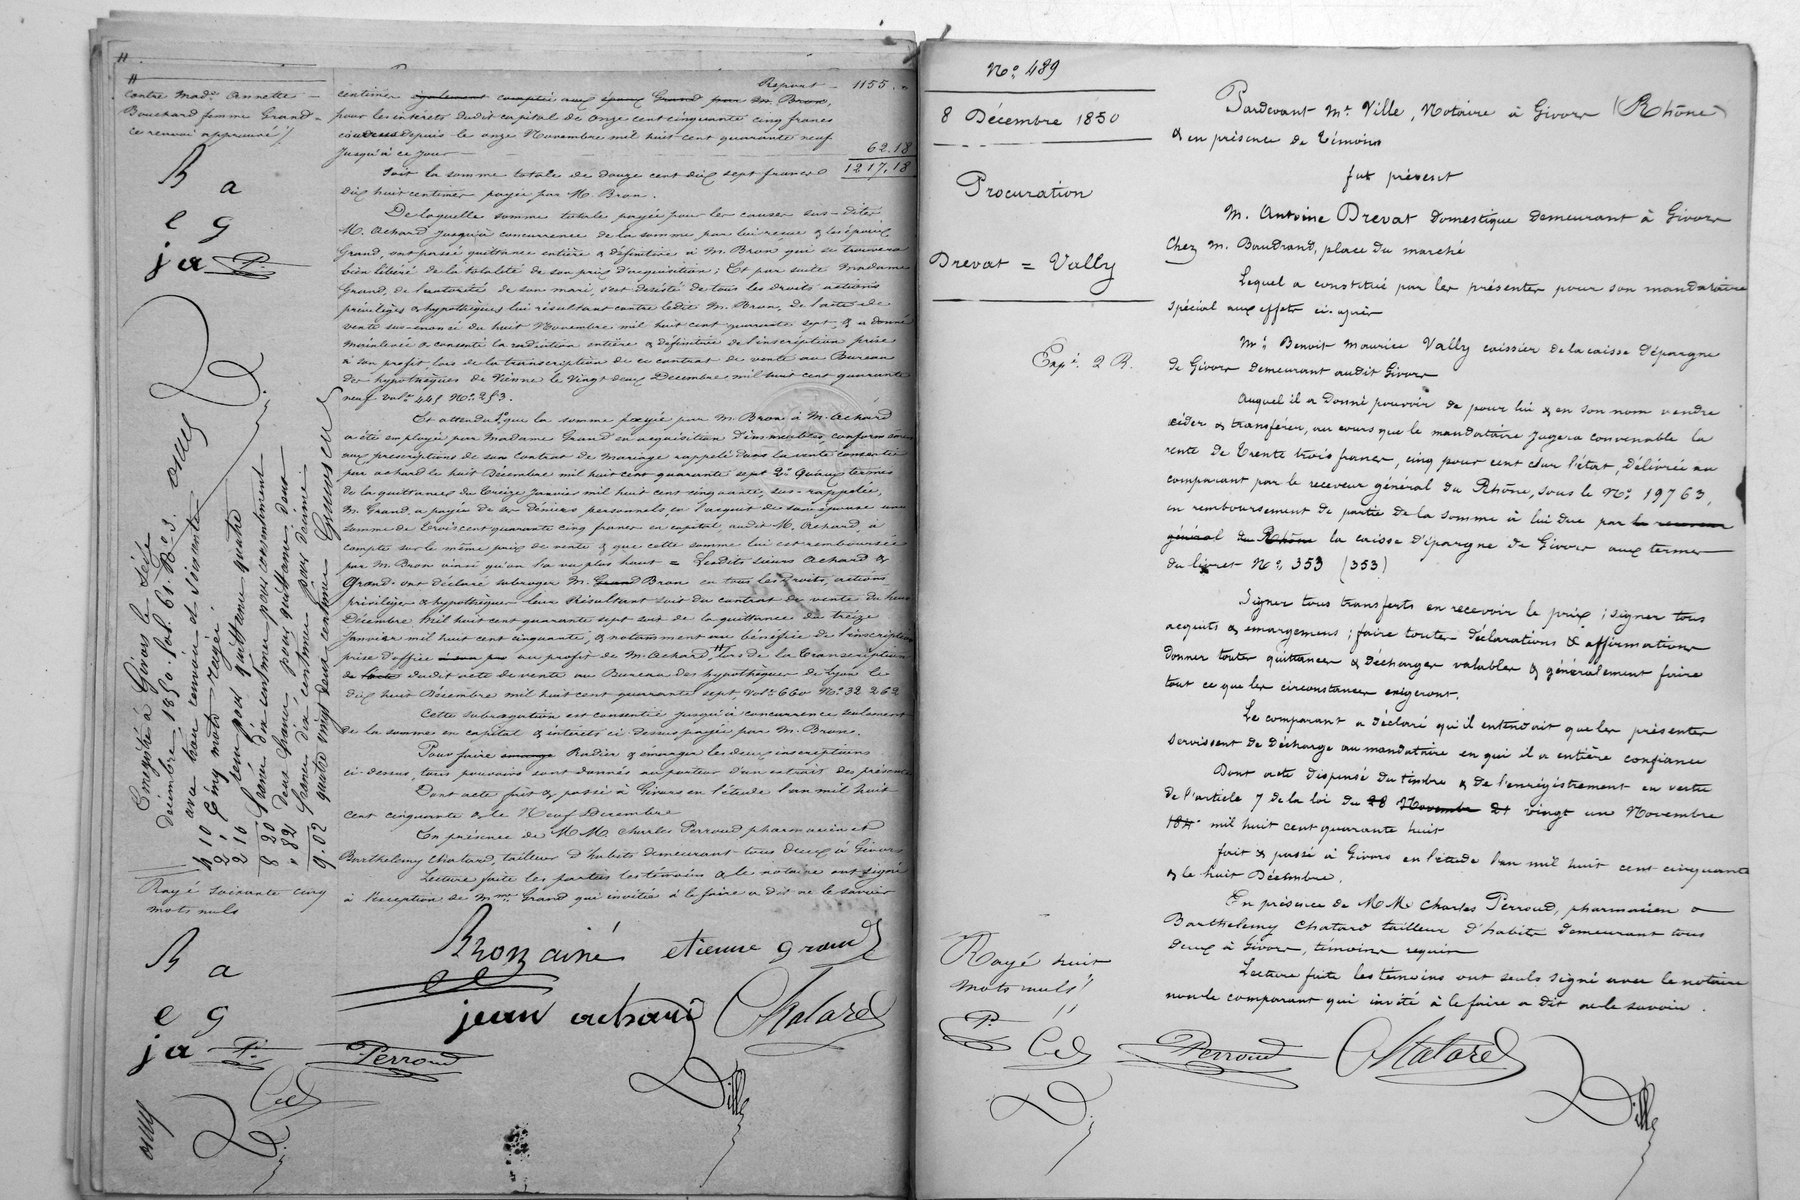 contre Mad.e Annette
Bouchard femme Grand =
ce renvoi approuvé /
R a
e g
ja P.
Report 1155. "
centimes également comptée aux époux Grand par M. Bron,
pour les intérêts dudit capital de onze cent cinquante cinq francs
depuis le onze Novembre mil huit cent quarante neuf
Jusqu'à ce jour 62.18
1217,18
Soit la somme totale de douze cent dix sept francs
dix huit centimes payée par M. Bron.
De laquelle somme totale payée pour les causes sus-dites
M. Achard jusqu'à concurrence de la somme par lui reçue & les époux
Grand, ont passé quittance entière & définitive à M. Bron qui se trouvera
bien libéré de la totalité de son prix d'acquisition ; Et par suite Madame
Grand, de l'autorité de son mari, s'est désisté de tous les droits actions
privilèges & hypothèques lui résultant contre ledit M. Bron, de l'acte de
vente sus-énoncé du huit Novembre mil huit cent quarante sept, & a donné
mainlevée & consenti la radiation entière & définitive de l'inscription prise
à son profit, lors de la transcription de ce contrat de vente au Bureau
des hypothèques de Vienne le Vingt deux Décembre mil huit cent quarante
neuf vol. 445 N.o 253.
Et attendu 1.o que la somme payée par M. Bron à M. Achard
a été employée par Madame Grand en acquisition d'immeubles conformément
aux prescriptions de son contrat de Mariage rappelé dans la vente consentie
par achard le huit Décembre mil huit cent quarante sept 2.o Qu'aux termes
de la quittance du treize Janvier mil huit cent cinquante, sus-rappelée,
M. Grand, a payée de ses deniers personnels, en l'acquit de son épouse une
somme de trois cent quarante cinq francs en capital, audit M. Achard, à
compte sur le même prix de vente & que cette somme lui est remboursée
par M. Bron ainsi qu'on l'a vu plus haut = Lesdits sieurs Achard &
Grand ont déclaré subroger M. Grand Bron en tous les droits, actions
privilèges & hypothèques leur Résultant soit du contrat de vente du huit
Décembre mil huit cent quarante sept soit de la quittance du treize
Janvier mil huit cent cinquante, & notamment au bénéfice de l'inscription
prise d'office au profit de M. Achard, lors de la transcription
de l'acte dudit acte de vente au Bureau des hypothèques de Lyon le
dix huit Décembre mil huit cent quarante sept Vol. 660 N.o 32 262
Cette subrogation est consentie Jusqu'à concurrence seulement
de la somme en capital & intérêts ci-dessus payée par M. Bron.
Pour faire Radier & émarger les deux inscriptions
ci-dessus, tous pouvoirs sont donnés au porteur d'un extrait des présentes
Dont acte fait & passé à Givors en l'étude l'an mil huit
cent cinquante & le Neuf Décembre
En présence de M M. Charles Perroud pharmacien et
Barthelemy Chatard, tailleur d'habits demeurant tous deux à Givors
Lecture faite les parties les témoins & le notaire ont signé
à l'exception de M.me Grand qui invitée à le faire a dit ne le savoir
Enregistré à Givors le seize
décembre 1850. fol. 61. R.o C. 3.
avec trois renvois
cinq mots rayés
4 10
2 16 pour quittance quatre
8 20 francs dix centimes pour consentement
" 82 deux francs pour quittance deux
9.02 francs dix centimes pour décime
quatre vingt deux centimes
Rayé soixante cinq
mots nuls
R a
e g
ja P.
Bron ainé etienne grand
jean achard Chatard
Perroud
Cd
Ville
N.o 489
8 Décembre 1850
Procuration
Drevat = Vally
Exp.é 2 R.
Pardevant M.e Ville, Notaire à Givors (Rhône)
& en présence de témoins
fut présent
M. Antoine Drevat Domestique demeurant à Givors
Chez M. Baudrand, place du marché
Lequel a constitué par les présentes pour son mandataire
spécial aux effets ci-après
M.r Benoit Maurice Vally caissier de la caisse d'épargne
de Givors demeurant audit Givors
Auquel il a donné pouvoir de pour lui & en son nom vendre
céder & transférer, au cours que le mandataire jugera convenable la
rente de trente trois francs, cinq pour cent sur l'état, délivrée au
comparant par le receveur général du Rhône, sous le N.o 19763,
en remboursement de partie de la somme à lui due par le receveur
général du Rhône la caisse d'épargne de Givors aux termes
du livret N.o 353 (353)
Signer tous transferts en recevoir le prix ; signer tous
acquits & émargemens ; faire toutes déclarations & affirmations
donner toutes quittances & décharges valables & généralement faire
tout ce que les circonstances exigeront.
Le comparant a déclaré qu'il entendait que les présentes
servissent de décharge au mandataire en qui il a entière confiance
Dont acte dispensé du timbre & de l'enregistrement en vertu
de l'article 7 de la loi du 28 Novembre 21 vingt un Novembre
184 mil huit cent quarante huit
fait & passé à Givors en l'étude l'an mil huit cent cinquante
& le huit Décembre.
En présence de M M. Charles Perroud, pharmacien &
Barthelemy Chatard tailleur d'habits demeurant tous
deux à Givors, témoins requis
Lecture faite les témoins ont seuls signé avec le notaire
non le comparant qui invité à le faire a dit ne le savoir.
Rayé huit
mots nuls
P. Cd Perroud Chatard
Ville